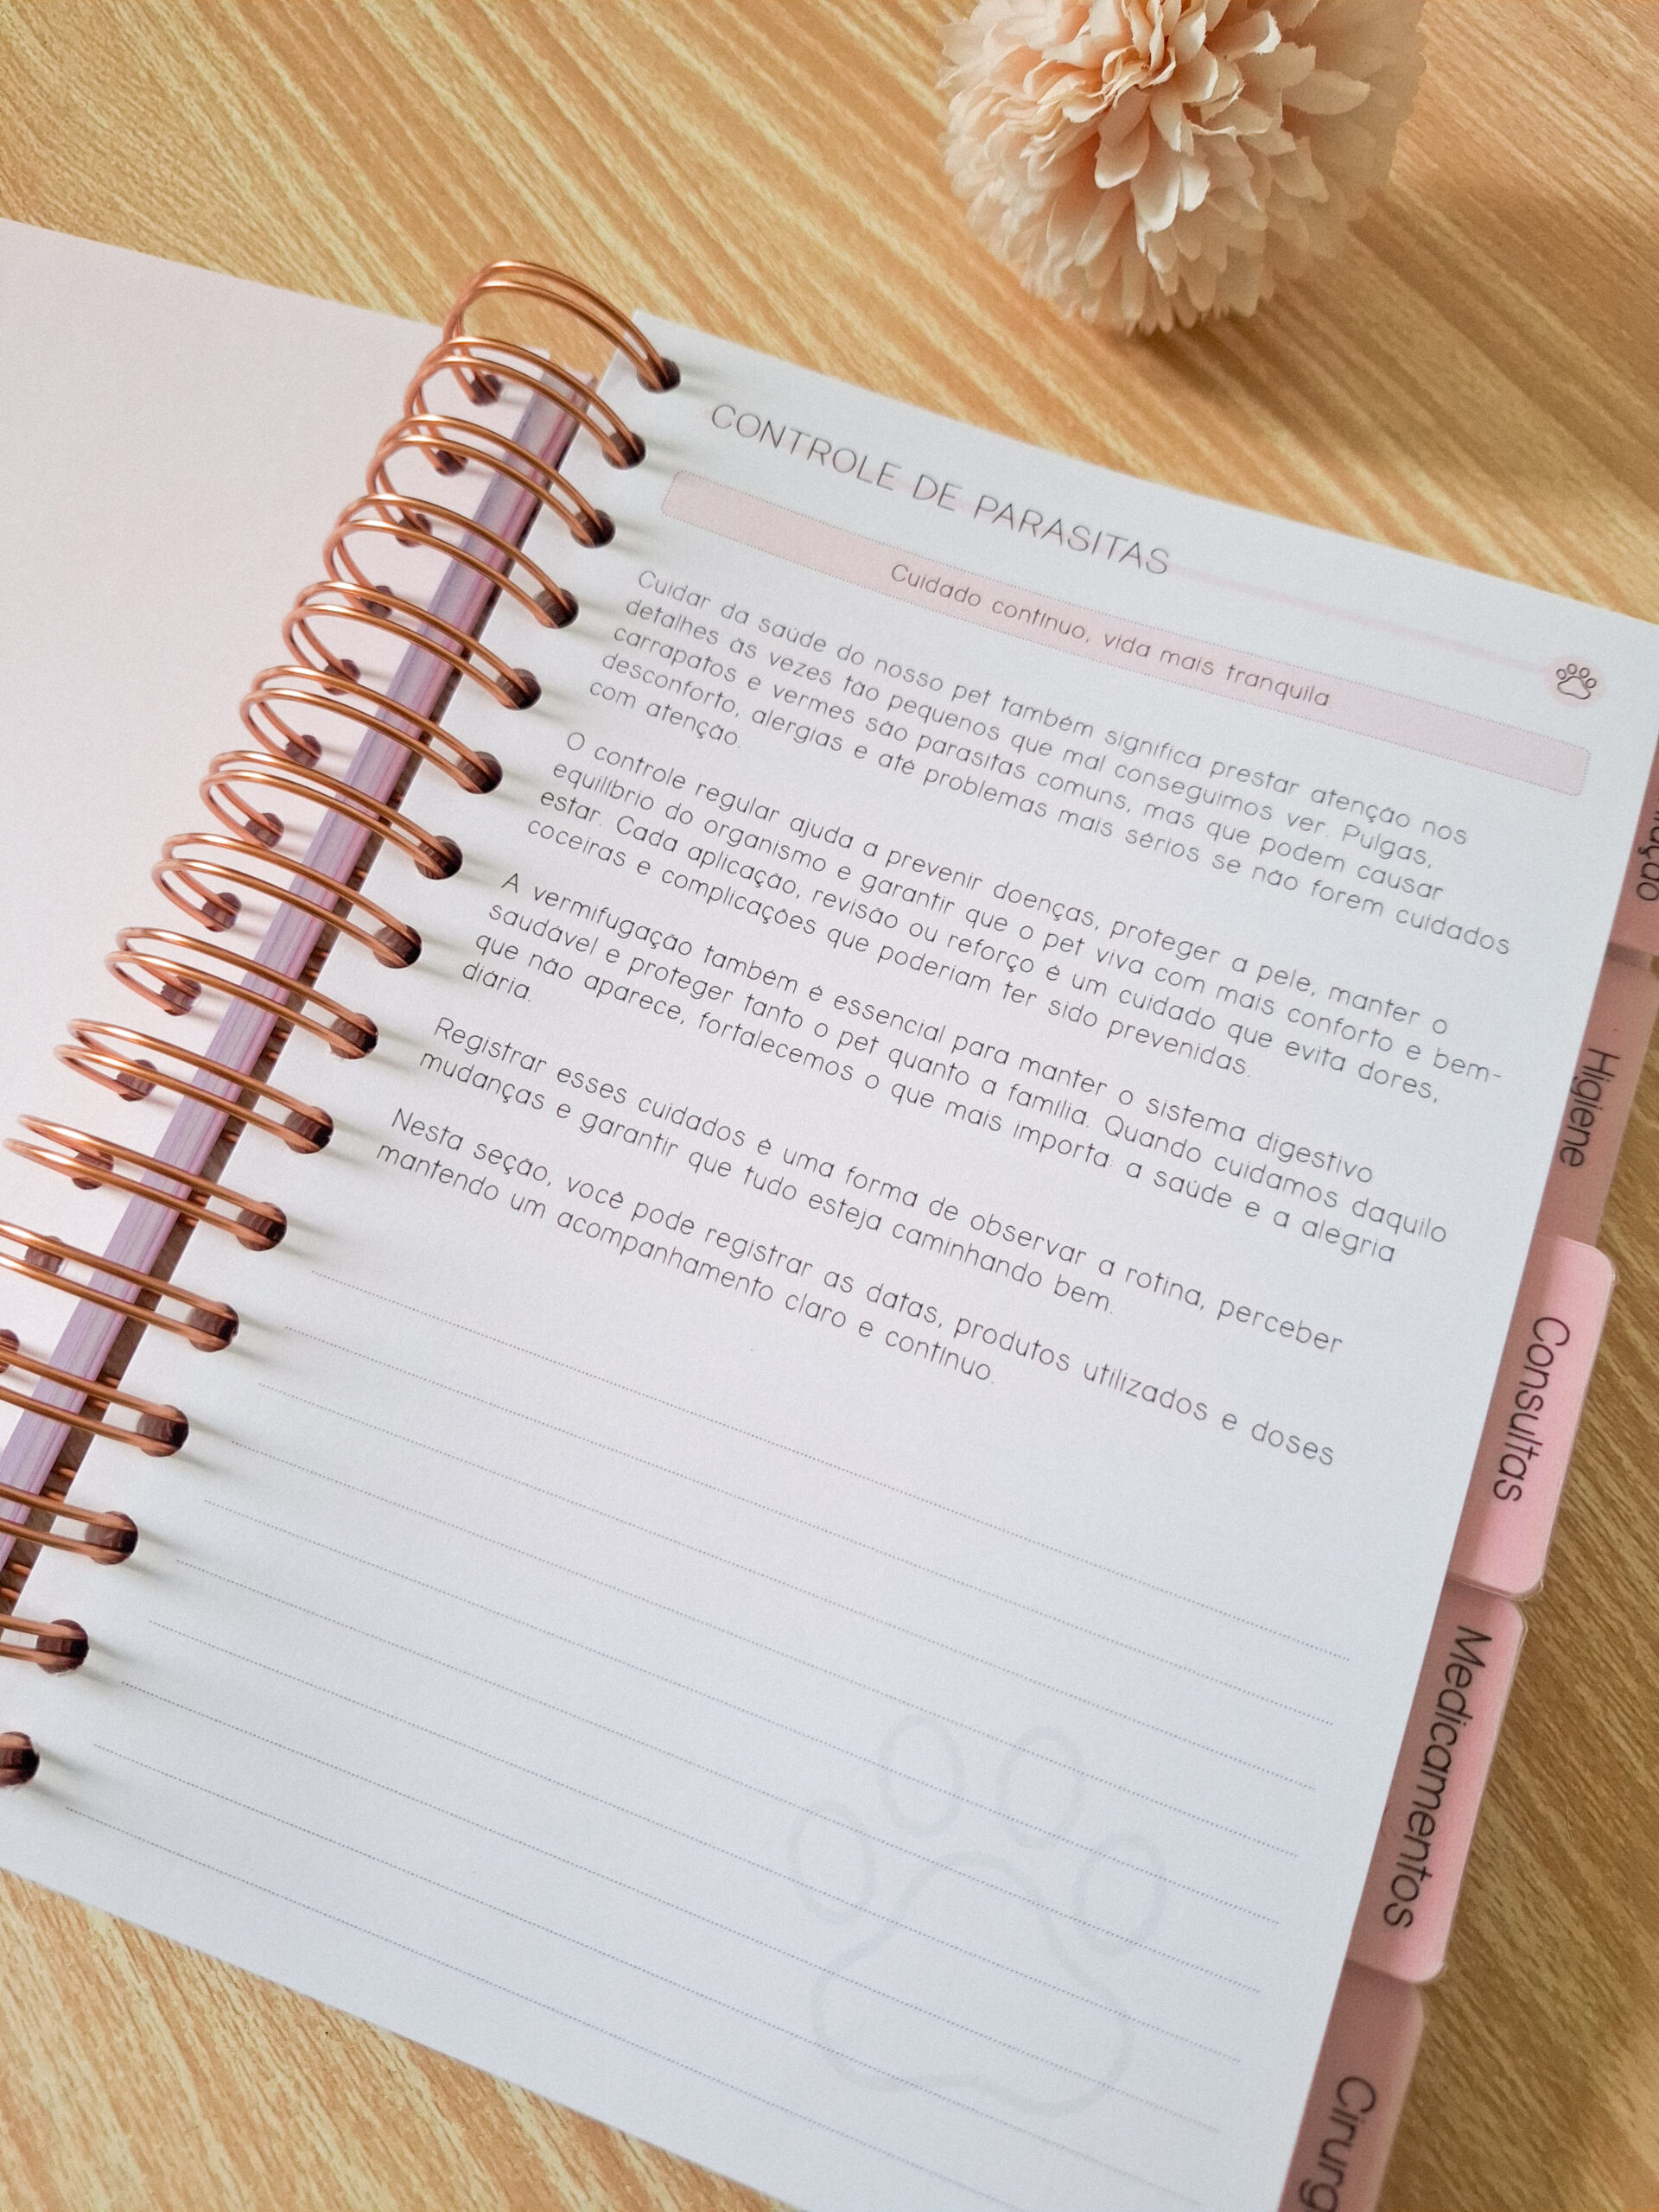 CONTROLE DE PARASITAS
Cuidado contínuo, vida mais tranquila.
Cuidar da saúde do nosso pet também significa prestar atenção nos
detalhes às vezes tão pequenos que mal conseguimos ver. Pulgas,
carrapatos e vermes são parasitas comuns, mas que podem causar
desconforto, alergias e até problemas mais sérios se não forem cuidados
com atenção.
O controle regular ajuda a prevenir doenças, proteger a pele, manter o
equilíbrio do organismo e garantir que o pet viva com mais conforto e bem-
estar. Cada aplicação, revisão ou reforço é um cuidado que evita dores,
coceiras e complicações que poderiam ter sido prevenidas.
A vermifugação também é essencial para manter o sistema digestivo
saudável e proteger tanto o pet quanto a família. Quando cuidamos daquilo
que não aparece, fortalecemos o que mais importa: a saúde e a alegria
diária.
Registrar esses cuidados é uma forma de observar a rotina, perceber
mudanças e garantir que tudo esteja caminhando bem.
Nesta seção, você pode registrar as datas, produtos utilizados e doses
mantendo um acompanhamento claro e contínuo.
Higiene
Consultas
Medicamentos